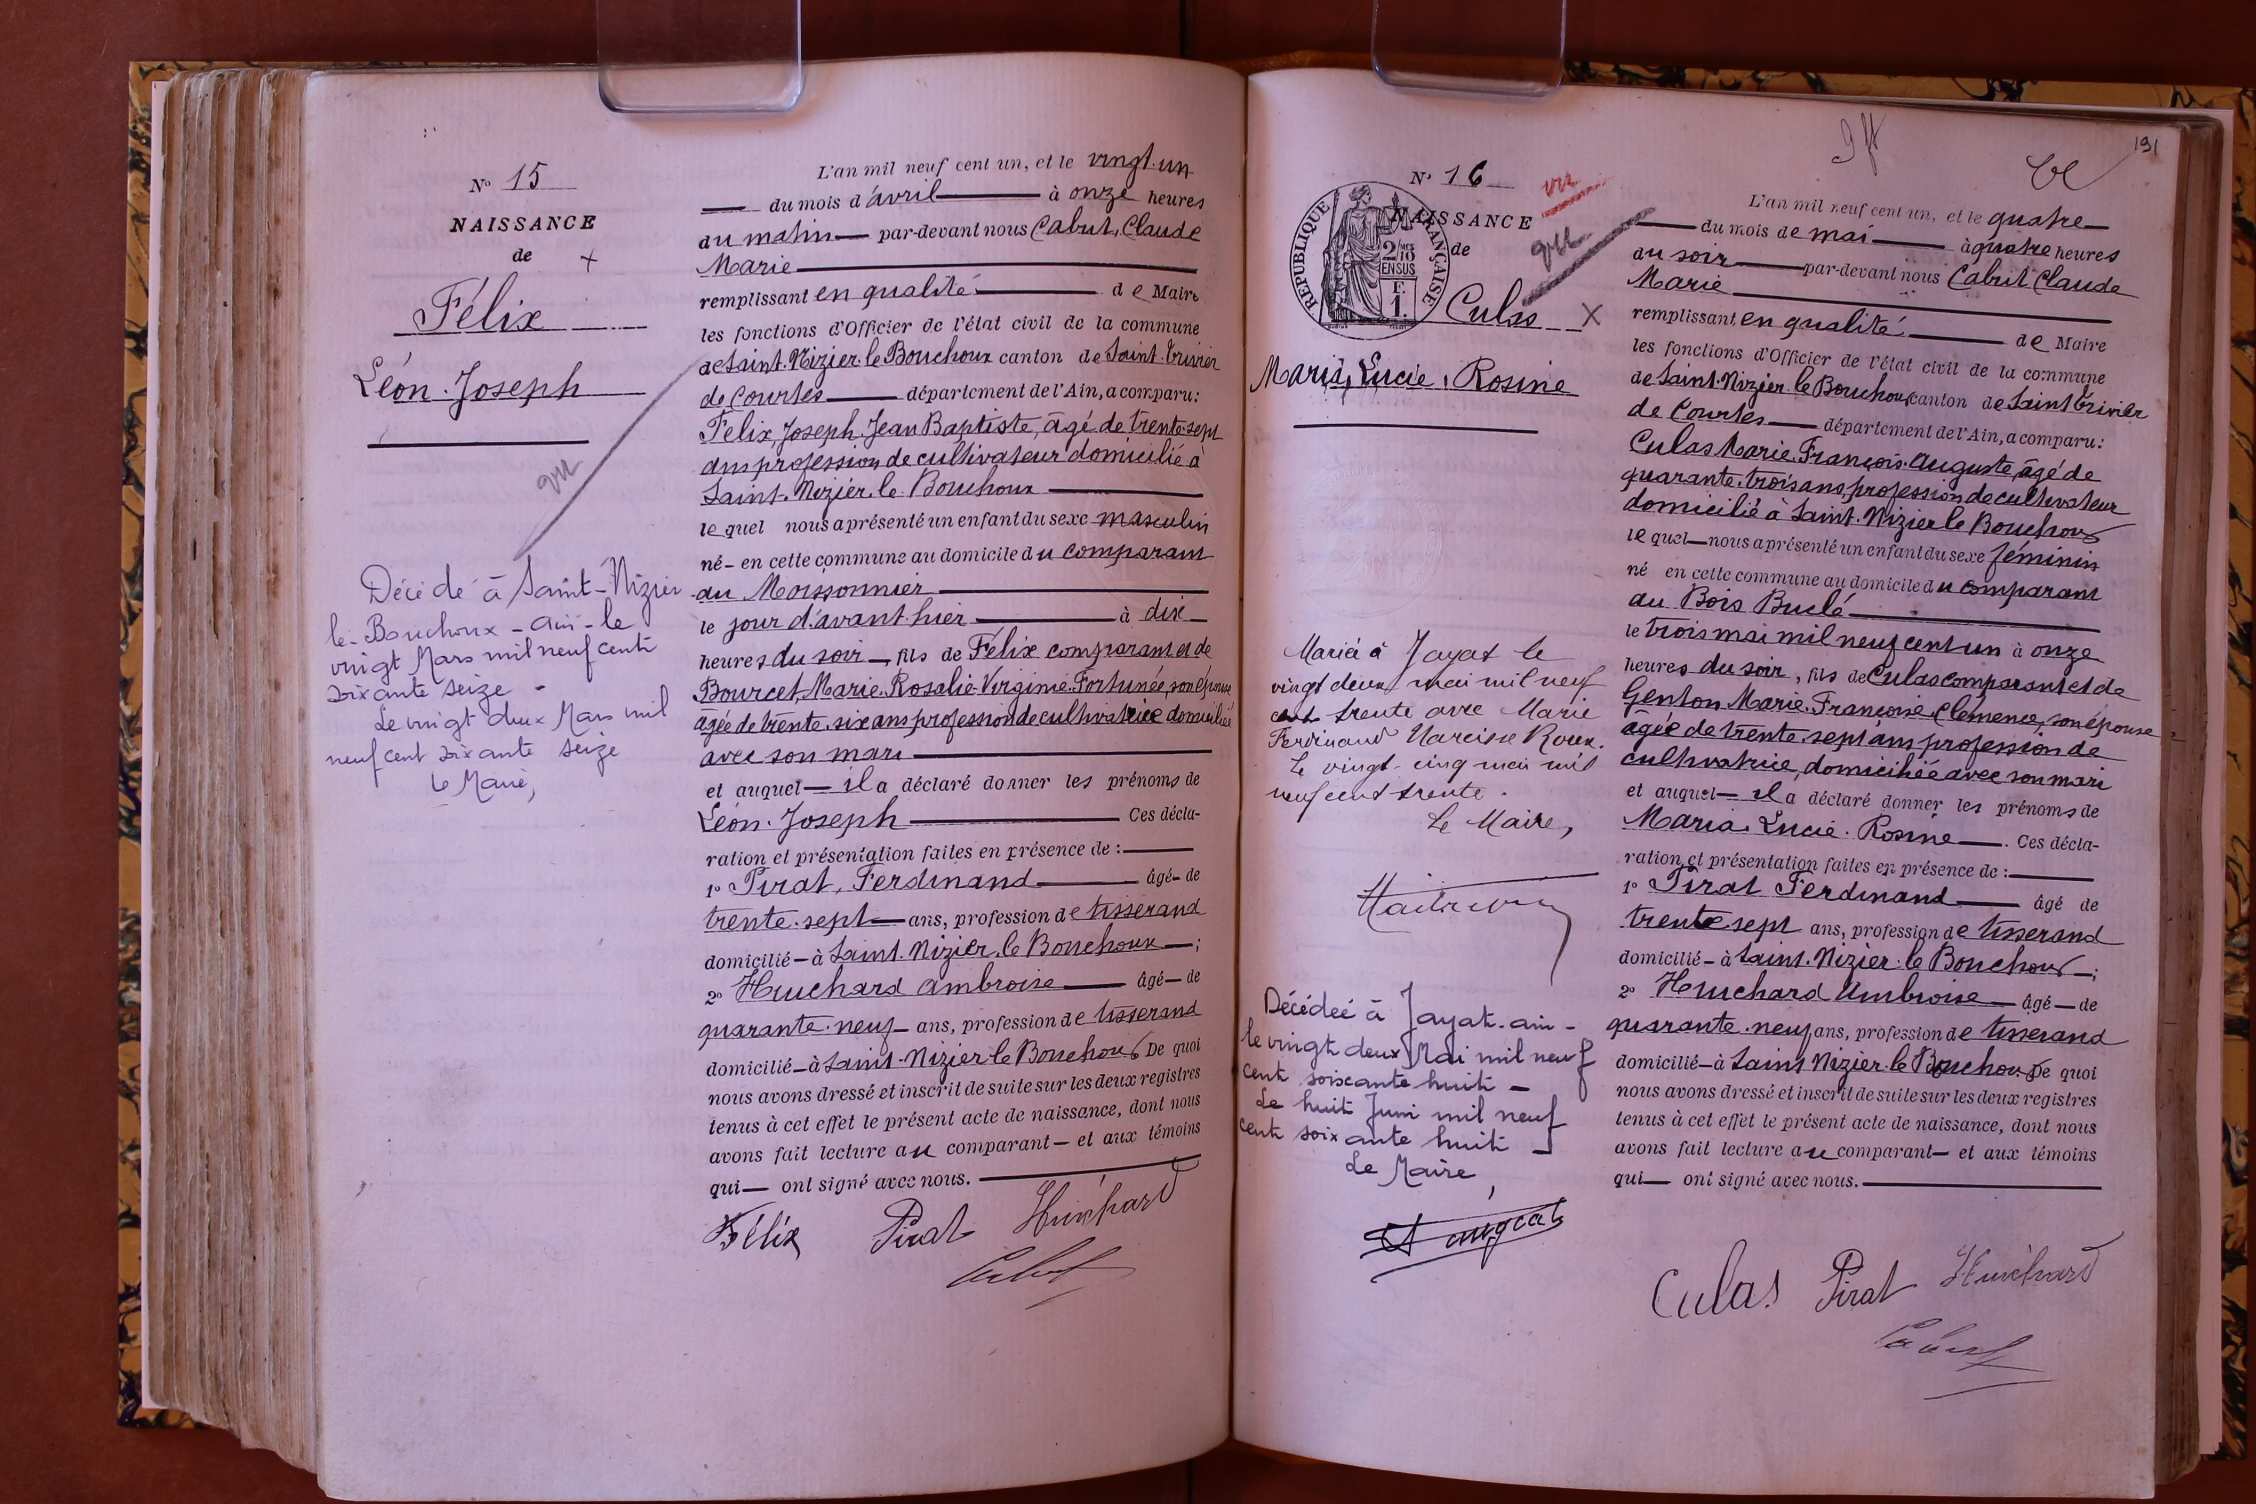 N° 15
NAISSANCE
de +
Félix
Léon. Joseph
vu
Décédé à Saint-Nizier
le-Bouchoux - Ain - le
vingt Mars mil neuf cent
soixante seize -
Le vingt deux Mars mil
neuf cent soixante seize
Le Maire,
L'an mil neuf cent un, et le vingt-un
du mois d'avril à onze heures
du matin par-devant nous Cabut, Claude
Marie
remplissant en qualité de Maire
les fonctions d'Officier de l'état civil de la commune
de Saint-Nizier-le Bouchoux canton de Saint-Trivier
de Courtes département de l'Ain, a comparu:
Félix, Joseph Jean Baptiste, âgé de trente-sept
ans profession de cultivateur domicilié à
Saint-Nizier-le Bouchoux
lequel nous a présenté un enfant du sexe masculin
né - en cette commune au domicile du comparant
au Moissonnier
le jour d'avant-hier à dix
heures du soir, fils de Félix comparant et de
Bourcet, Marie. Rosalie-Virginie. Fortunée, son épouse
âgée de trente-six ans profession de cultivatrice domiciliée
avec son mari
et auquel il a déclaré donner les prénoms de
Léon. Joseph Ces décla-
ration et présentation faites en présence de :
1° Pirat, Ferdinand âgé de
trente-sept ans, profession de tisserand
domicilié - à Saint-Nizier-le Bouchoux ;
2° Huchard Ambroise âgé de
quarante-neuf ans, profession de tisserand
domicilié - à Saint-Nizier-le Bouchoux De quoi
nous avons dressé et inscrit de suite sur les deux registres
tenus à cet effet le présent acte de naissance, dont nous
avons fait lecture au comparant - et aux témoins
qui - ont signé avec nous.
Félix Pirat Huichard
Cabut
191
N° 16
vu
RÉPUBLIQUE FRANÇAISE
2/10 EN SUS
F. 1.
NAISSANCE
de
vu
Culas X
Maria, Lucie, Rosine
Mariée à Jayat le
vingt deux mai mil neuf
cent trente avec Marie
Ferdinand Narcisse Roux.
Le vingt-cinq mai mil
neuf cent trente.
Le Maire,
Décédée à Jayat-ain -
le vingt deux Mai mil neuf
cent soixante huit -
Le huit Juin mil neuf
cent soixante huit -
Le Maire,
L'an mil neuf cent un, et le quatre
du mois de mai à quatre heures
du soir par-devant nous Cabut Claude
Marie
remplissant en qualité de Maire
les fonctions d'Officier de l'état civil de la commune
de Saint-Nizier-le Bouchoux canton de Saint Trivier
de Courtes département de l'Ain, a comparu:
Culas Marie. François. Auguste, âgé de
quarante-trois ans, profession de cultivateur
domicilié à Saint-Nizier le Bouchoux
lequel nous a présenté un enfant du sexe féminin
né en cette commune au domicile du comparant
au Bois Buclé
le trois mai mil neuf cent un à onze
heures du soir, fils de Culas comparant et de
Genton Marie. Françoise Clémence, son épouse
âgée de trente-sept ans profession de
cultivatrice, domiciliée avec son mari
et auquel il a déclaré donner les prénoms de
Maria. Lucie. Rosine. Ces décla-
ration et présentation faites en présence de :
1° Pirat Ferdinand âgé de
trente sept ans, profession de tisserand
domicilié - à Saint-Nizier-le Bouchoux ;
2° Huchard Ambroise âgé de
quarante-neuf ans, profession de tisserand
domicilié - à Saint Nizier-le Bouchoux De quoi
nous avons dressé et inscrit de suite sur les deux registres
tenus à cet effet le présent acte de naissance, dont nous
avons fait lecture au comparant - et aux témoins
qui - ont signé avec nous.
Culas Pirat Huichard
Cabut